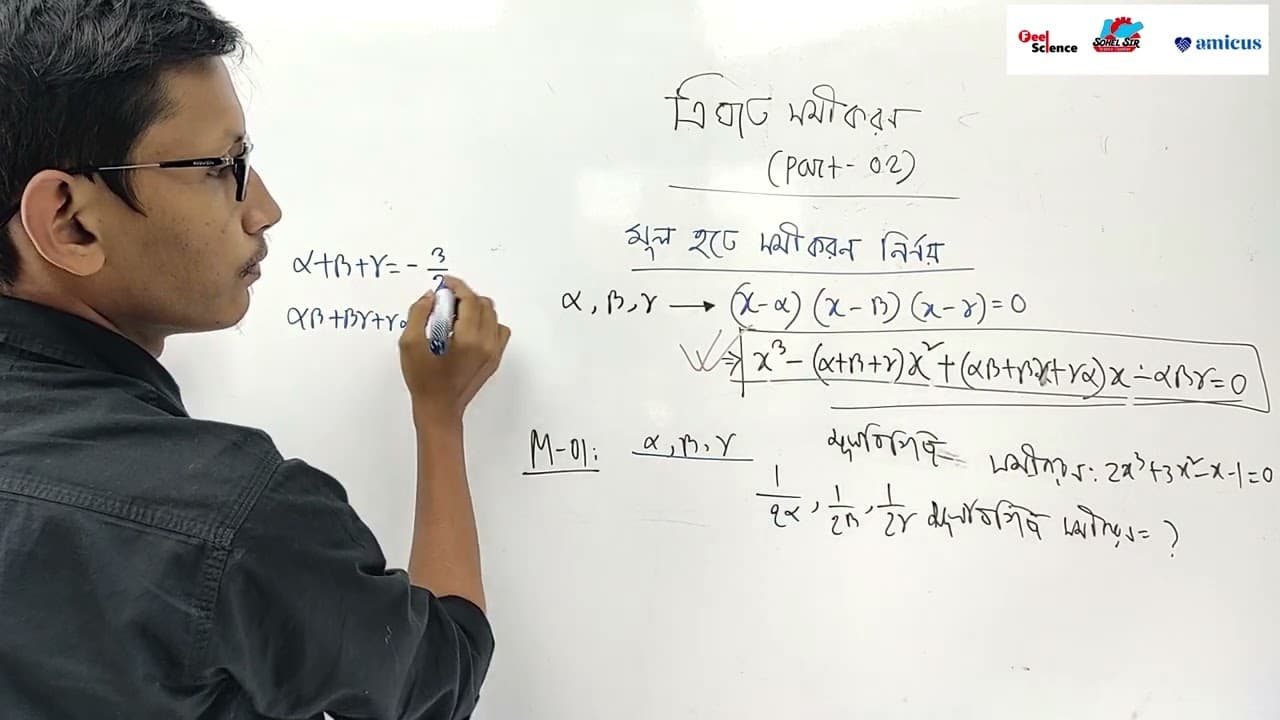 Feel Science
SOHEL SIR
amicus
ত্রিঘাত সমীকরন
(Part - 02)
মূল হতে সমীকরন নির্নয়
α, β, γ → (x-α) (x-β) (x-γ) = 0
⇒ x³ - (α+β+γ)x² + (αβ+βγ+γα)x - αβγ = 0
α+β+γ = - 3/2
αβ+βγ+γα
M-01: α, β, γ মূলবিশিষ্ট সমীকরণ: 2x³+3x²-x-1=0
1/2α, 1/2β, 1/2γ মূলবিশিষ্ট সমীকরণ = ?